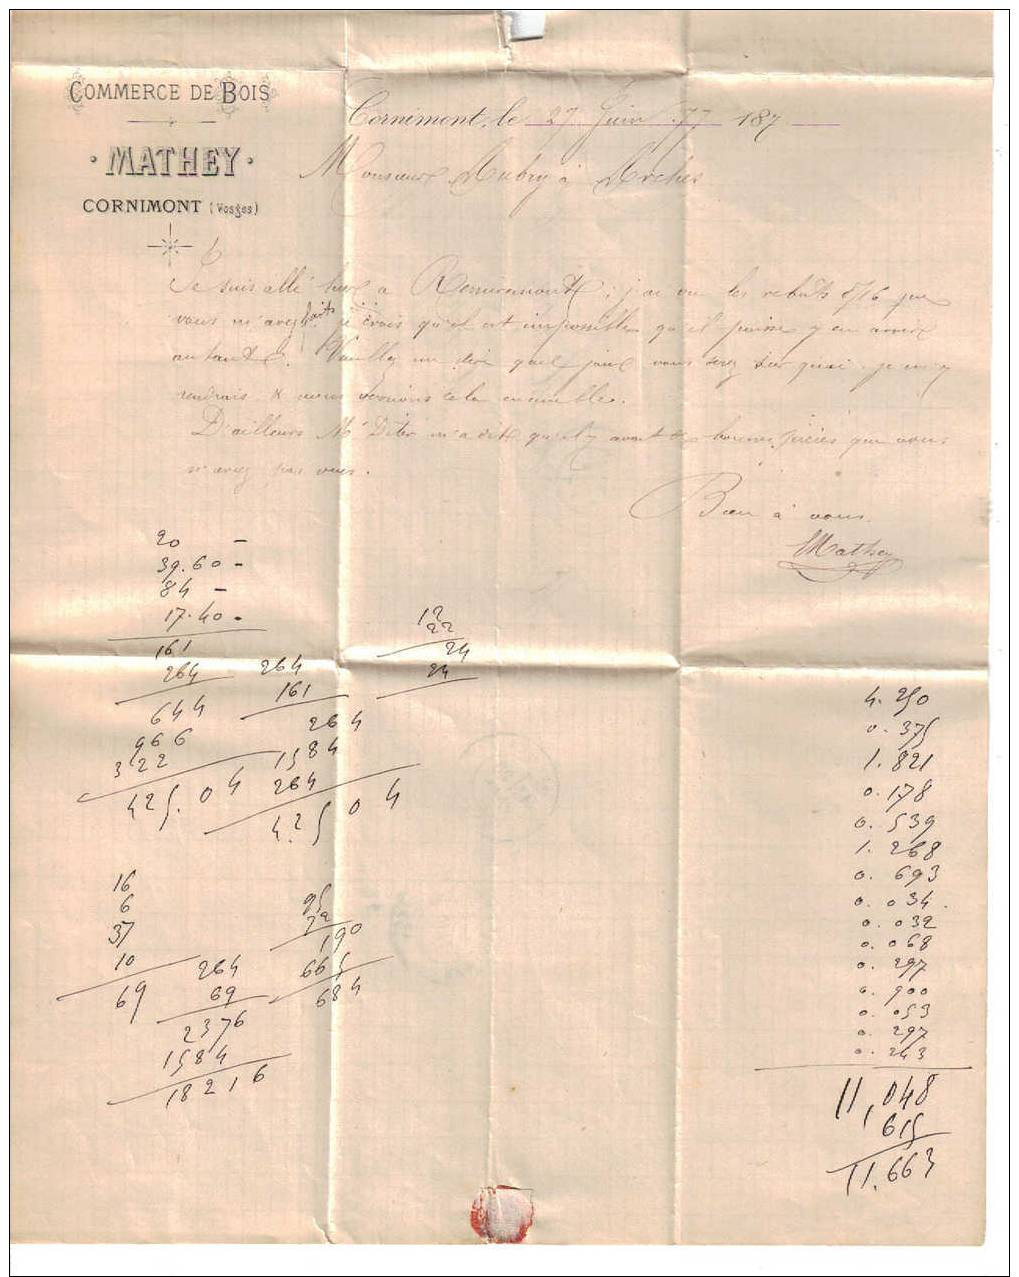 COMMERCE DE BOIS
MATHEY
CORNIMONT (Vosges)
Cornimont, le 27 Juin 77 187
Monsieur Aubry à Arches
Je suis allé hier a Remiremont ; j'ai vu les rebuts que
vous m'avez faits je crois qu'il est impossible qu'il puisse y en avoir
autant. Veuillez me dire quel jour vous serez sur quai, je m'y
rendrais & nous verrions cela ensemble.
D'ailleurs Mr m'a dit qu'il y avait de bonnes pièces que vous
n'avez pas vues.
Bien à vous
Mathey
20 -
39.60 -
84 -
17.40 -
161
264
644
966
322
425.04
264
161
264
1584
264
425 04
12
22
24
24
16
6
37
10
69
264
69
2376
1584
18216
95
190
665
684
4.250
0.375
1.821
0.178
0.539
1.268
0.693
0.034
0.032
0.068
0.297
0.900
0.053
0.297
0.243
11,048
615
11.663